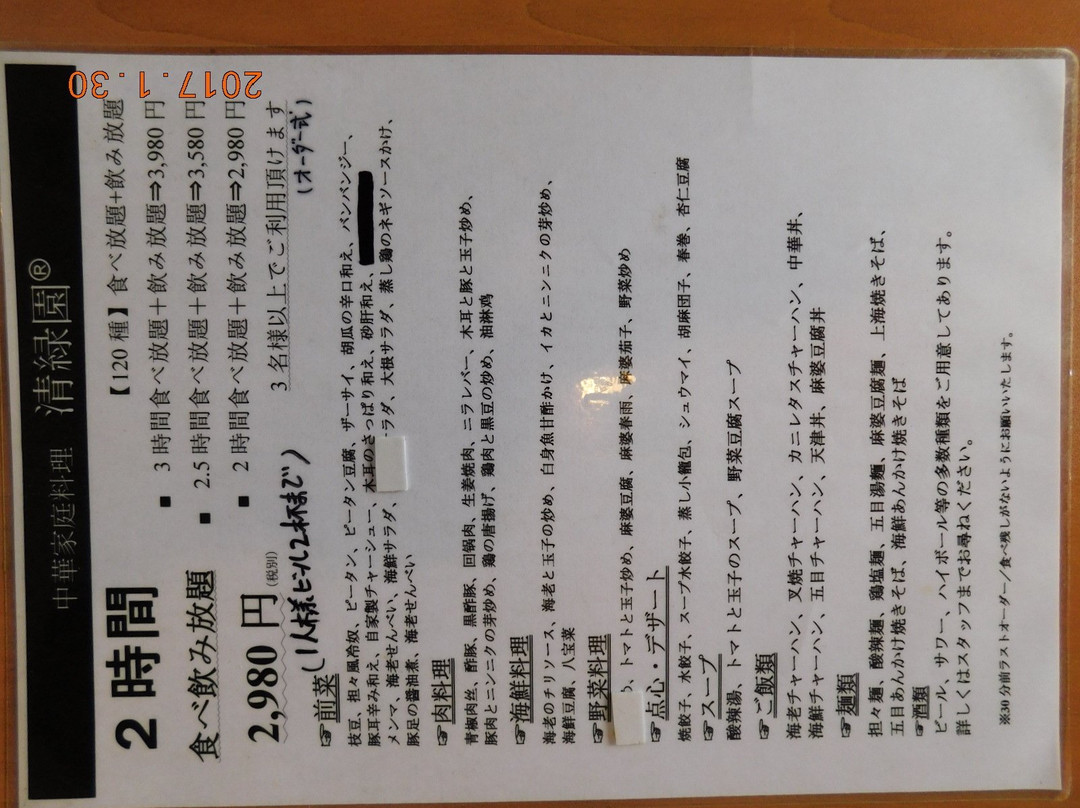 中華家庭料理 清緑園®
2時間
食べ飲み放題
2,980 円(税別)
(1人様ビール2杯まで)
【120 種】食べ放題+飲み放題
■ 3 時間食べ放題＋飲み放題⇒3,980 円
■ 2.5 時間食べ放題＋飲み放題⇒3,580 円
■ 2 時間食べ放題＋飲み放題⇒2,980 円
3 名様以上でご利用頂けます
(オーダー式)
☞前菜
枝豆、担々風冷奴、ピータン、ピータン豆腐、ザーサイ、胡瓜の辛口和え、バンバンジー、
豚耳辛み和え、自家製チャーシュー、木耳のさっぱり和え、砂肝和え、
メンマ、海老せんべい、海鮮サラダ、ラダ、大根サラダ、蒸し鶏のネギソースかけ、
豚足の醤油煮、海老せんべい
☞肉料理
青椒肉丝、酢豚、黒酢豚、回鍋肉、生姜焼肉、ニラレバー、木耳と豚と玉子炒め、
豚肉とニンニクの芽炒め、鶏の唐揚げ、鶏肉と黒豆の炒め、油淋鸡
☞海鮮料理
海老のチリソース、海老と玉子の炒め、白身魚甘酢かけ、イカとニンニクの芽炒め、
海鮮豆腐、八宝菜
☞野菜料理
、トマトと玉子炒め、麻婆豆腐、麻婆春雨、麻婆茄子、野菜炒め
☞点心・デザート
焼餃子、水餃子、スープ水餃子、蒸し小籠包、シュウマイ、胡麻団子、春巻、杏仁豆腐
☞スープ
酸辣湯、トマトと玉子のスープ、野菜豆腐スープ
☞ご飯類
海老チャーハン、叉焼チャーハン、カニレタスチャーハン、中華丼、
海鮮チャーハン、五目チャーハン、天津丼、麻婆豆腐丼
☞麺類
担々麺、酸辣麺、鶏塩麺、五目湯麺、麻婆豆腐麺、上海焼きそば、
五目あんかけ焼きそば、海鮮あんかけ焼きそば
☞酒類
ビール、サワー、ハイボール等の多数種類をご用意してあります。
詳しくはスタッフまでお尋ねください。
※30 分前ラストオーダー／食べ残しがないようにお願いいたします。
2017. 1. 30